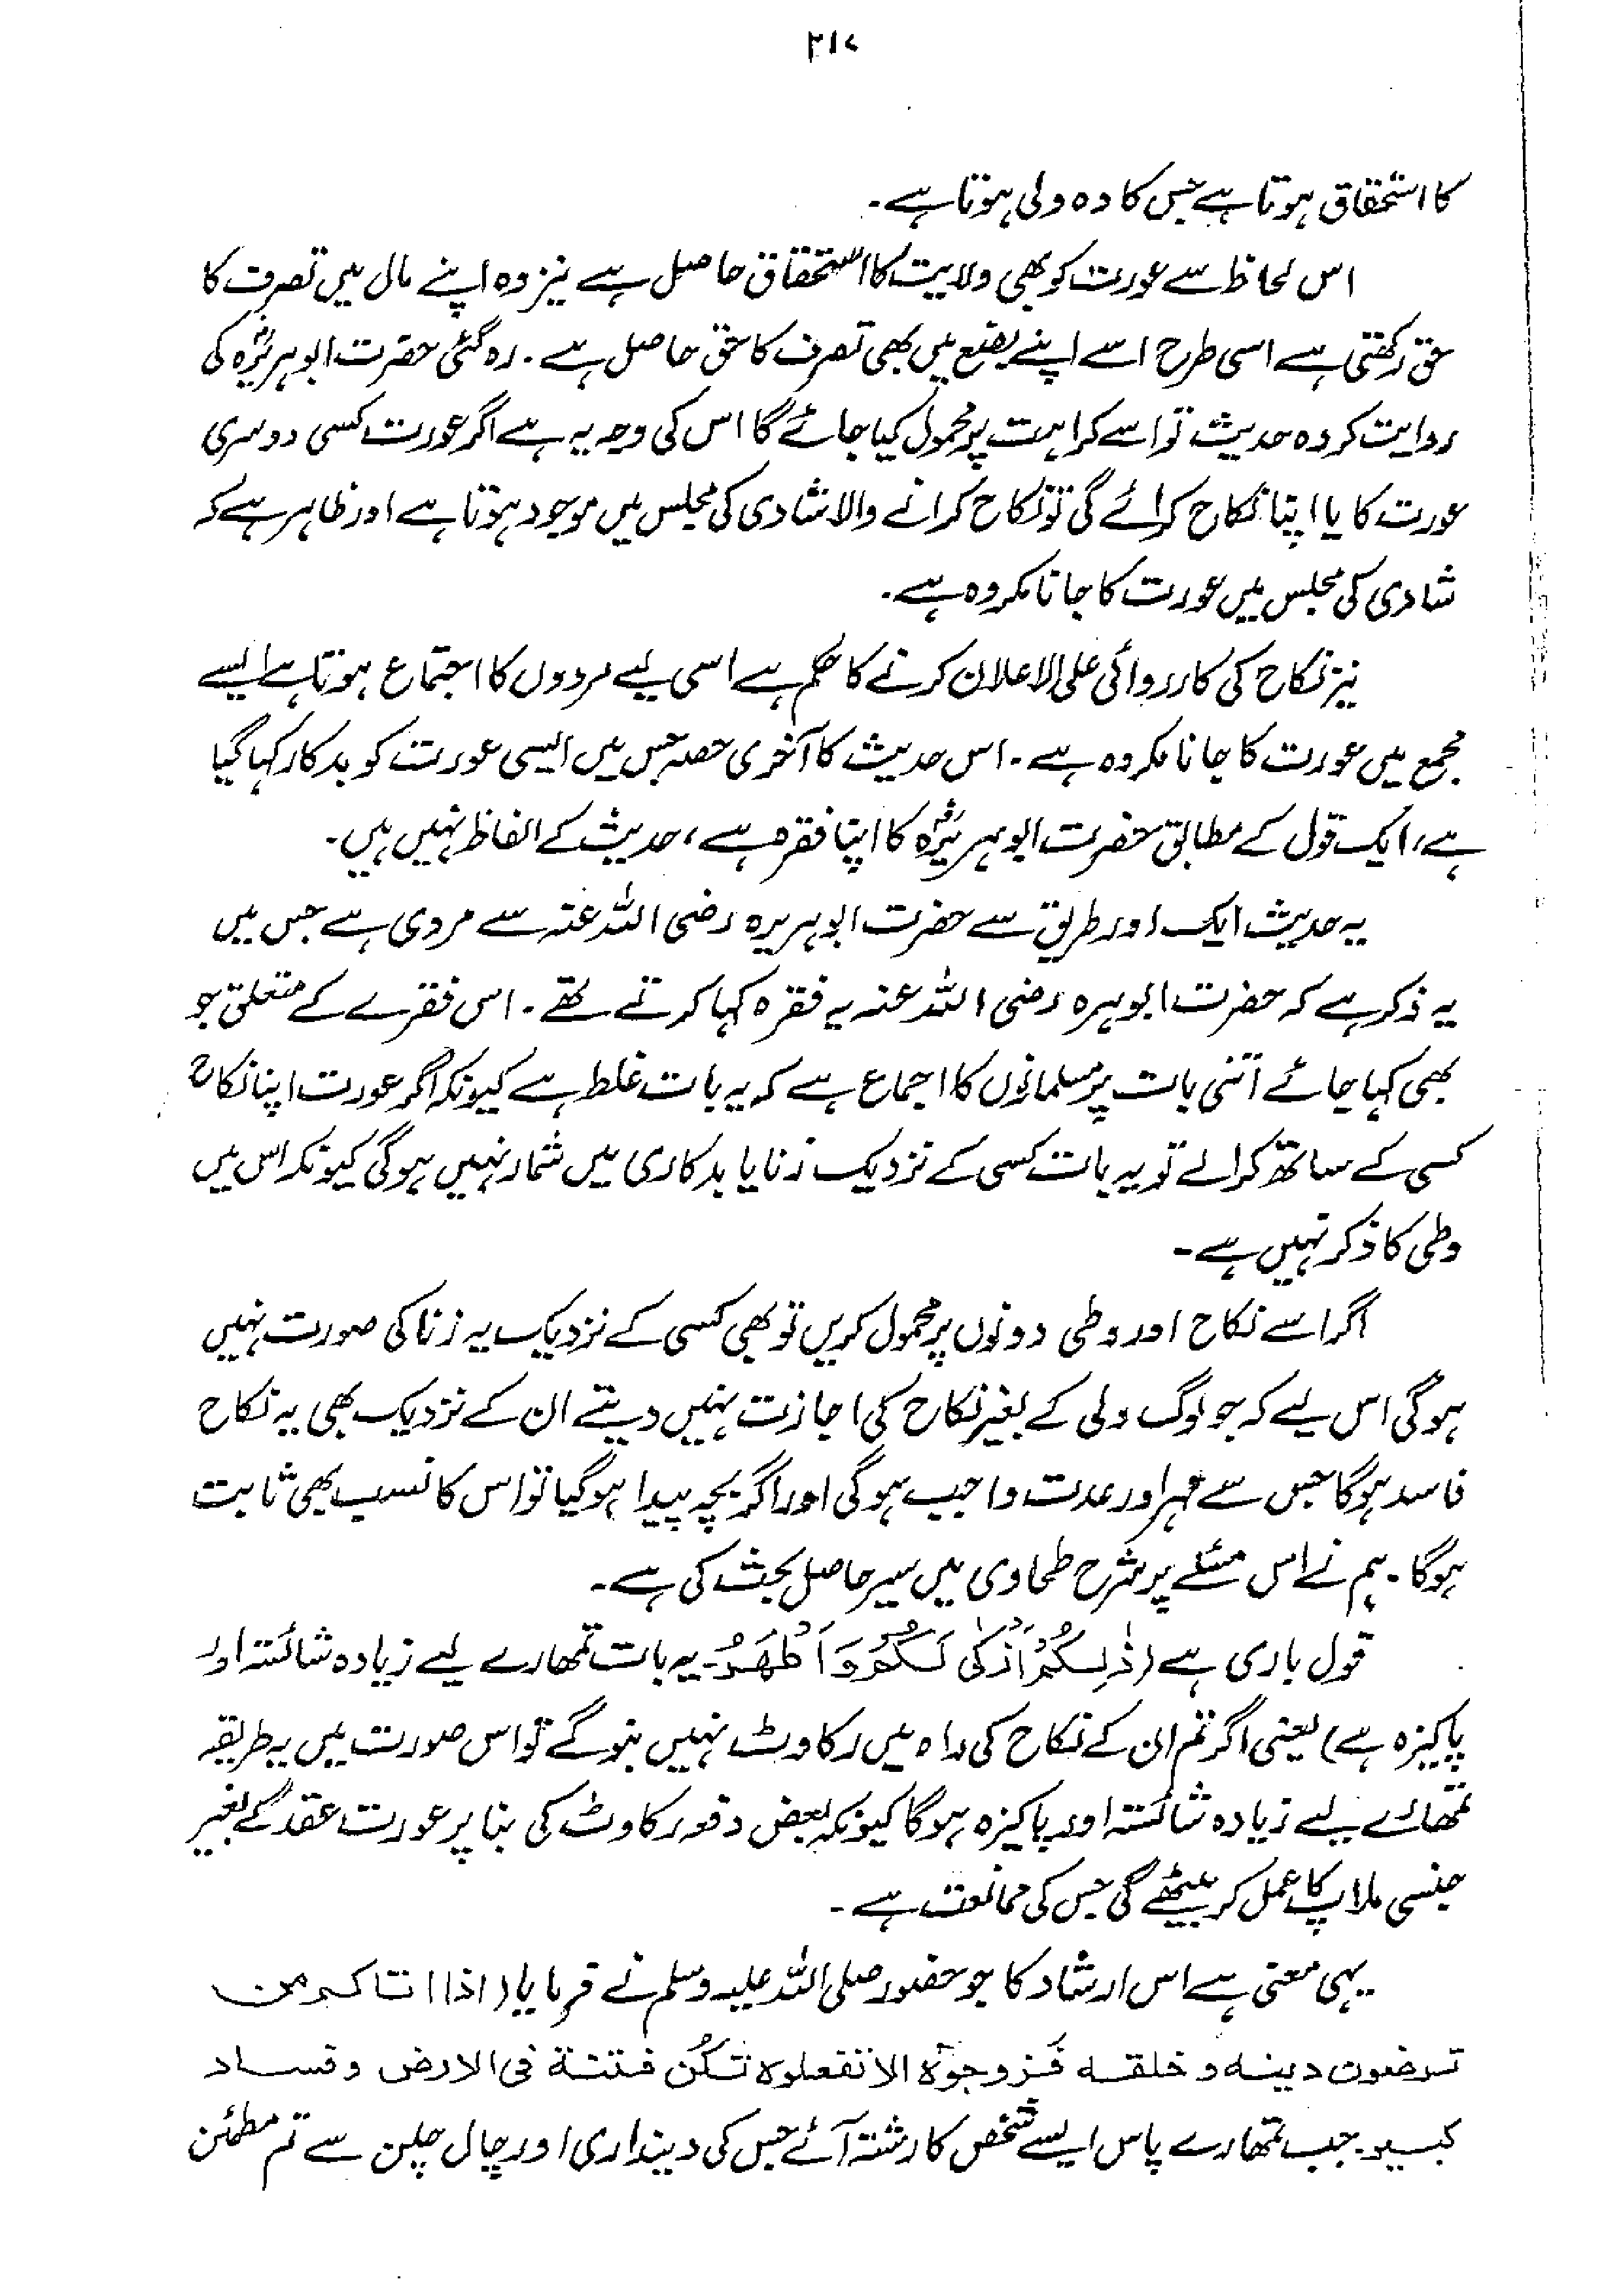 ۲۱۷
کا استحقاق ہوتا ہے جس کا وہ ولی ہوتا ہے۔
اس لحاظ سے عورت کو بھی ولایت کا استحقاق حاصل ہے نیز وہ اپنے مال میں تصرف کا
حق رکھتی ہے اسی طرح اسے اپنے بضع میں بھی تصرف کا حق حاصل ہے۔ رہ گئی حضرت ابوہریرہؓ کی
روایت کردہ حدیث تو اسے کراہت پر محمول کیا جائے گا اس کی وجہ یہ ہے اگر عورت کسی دوسری
عورت کا یا اپنا نکاح کرائے گی تو نکاح کرانے والا شادی کی مجلس میں موجود ہوتا ہے اور ظاہر ہے کہ
شادی کی مجلس میں عورت کا جانا مکروہ ہے۔
نیز نکاح کی کارروائی علی الاعلان کرنے کا حکم ہے اسی لیے مردوں کا اجتماع ہوتا ہے ایسے
مجمع میں عورت کا جانا مکروہ ہے۔ اس حدیث کا آخری حصہ جس میں ایسی عورت کو بدکار کہا گیا
ہے، ایک قول کے مطابق حضرت ابوہریرہؓ کا اپنا فقرہ ہے، حدیث کے الفاظ نہیں ہیں۔
یہ حدیث ایک اور طریق سے حضرت ابوہریرہ رضی اللہ عنہ سے مروی ہے جس میں
یہ ذکر ہے کہ حضرت ابوہرہ رضی اللہ عنہ یہ فقرہ کہا کرتے تھے۔ اس فقرے کے متعلق جو
بھی کہا جائے اتنی بات پر مسلمانوں کا اجماع ہے کہ یہ بات غلط ہے کیونکہ اگر عورت اپنا نکاح
کسی کے ساتھ کرالے تو یہ بات کسی کے نزدیک زنا یا بدکاری میں شمار نہیں ہوگی کیونکہ اس میں
وطی کا ذکر نہیں ہے۔
اگر اسے نکاح اور وطی دونوں پر محمول کریں تو بھی کسی کے نزدیک یہ زنا کی صورت نہیں
ہوگی اس لیے کہ جو لوگ ولی کے بغیر نکاح کی اجازت نہیں دیتے ان کے نزدیک بھی یہ نکاح
فاسد ہوگا جس سے مہر اور عدت واجب ہوگی اور اگر بچہ پیدا ہوگیا تو اس کا نسب بھی ثابت
ہوگا۔ ہم نے اس مسئلے پر شرح طحاوی میں سیر حاصل بحث کی ہے۔
قول باری ہے (ذٰلِكُمْ اَزْكٰی لَكُمْ وَ اَطْهَرُ۔ یہ بات تمھارے لیے زیادہ شائستہ اور
پاکیزہ ہے) یعنی اگر تم ان کے نکاح کی راہ میں رکاوٹ نہیں بنوگے تو اس صورت میں یہ طریقہ
تمھارے لیے زیادہ شائستہ اور پاکیزہ ہوگا کیونکہ بعض دفعہ رکاوٹ کی بنا پر عورت عقد کے بغیر
جنسی ملاپ کا عمل کر بیٹھے گی جس کی ممانعت ہے۔
یہی معنی ہے اس ارشاد کا جو حضور صلی اللہ علیہ وسلم نے فرمایا (اذا اتاكم من
ترضون دينه و خلقه فزوجوه الا تفعلوه تكن فتنة فی الارض و فساد
كبير۔ جب تمھارے پاس ایسے شخص کا رشتہ آئے جس کی دینداری اور چال چلن سے تم مطمئن